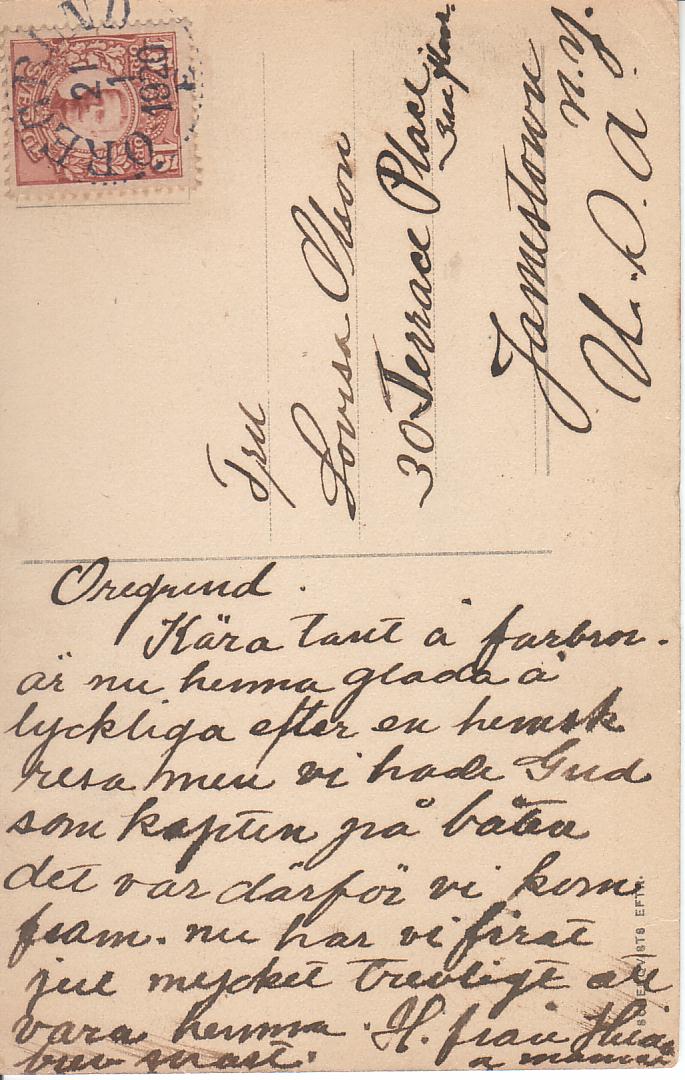 ÖREGRUND
21
1
1920
SVERIGE
Fru
Lovisa Olson
30 Terrace Place
Jamestown
N.Y.
U.S.A.
Öregrund.
Kära tant å farbror.
är nu hemma glada å
lyckliga efter en hemsk
resa men vi hade Gud
som kapten på båten
det var därför vi kom
fram. nu har vi firat
jul mycket trevligt att
vara hemma. H. från Hulda
brev snart. a mamma
EFTR.